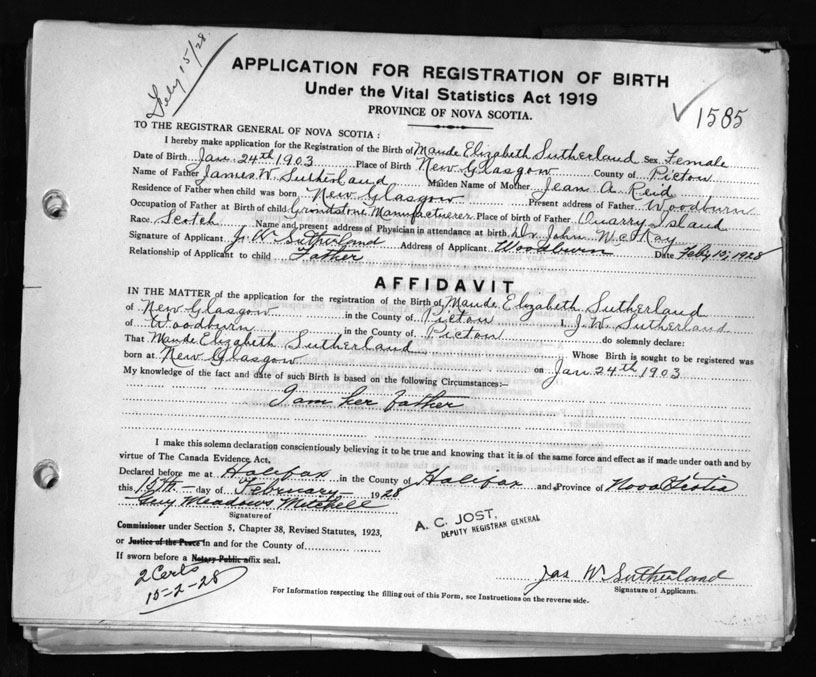 Feby 15/28
APPLICATION FOR REGISTRATION OF BIRTH
Under the Vital Statistics Act 1919
PROVINCE OF NOVA SCOTIA.
1585
TO THE REGISTRAR GENERAL OF NOVA SCOTIA:
I hereby make application for the Registration of the Birth of Maude Elizabeth Sutherland Sex Female
Date of Birth Jan. 24th 1903 Place of Birth New Glasgow County of Pictou
Name of Father James W. Sutherland Maiden Name of Mother Jean A. Reid
Residence of Father when child was born New Glasgow Present address of Father Woodburn
Occupation of Father at Birth of child Grindstone Manufacturer Place of birth of Father Quarry Island
Race Scotch Name and present address of Physician in attendance at birth Dr John W. McKay
Signature of Applicant J. W. Sutherland Address of Applicant Woodburn Date Feby 15, 1928
Relationship of Applicant to child Father
AFFIDAVIT
IN THE MATTER of the application for the registration of the Birth of Maude Elizabeth Sutherland
of New Glasgow in the County of Pictou I, J. W. Sutherland
of Woodburn in the County of Pictou do solemnly declare:
That Maude Elizabeth Sutherland Whose Birth is sought to be registered was
born at New Glasgow on Jan 24th 1903
My knowledge of the fact and date of such Birth is based on the following Circumstances:—
I am her father
I make this solemn declaration conscientiously believing it to be true and knowing that it is of the same force and effect as if made under oath and by
virtue of The Canada Evidence Act,
Declared before me at Halifax in the County of Halifax and Province of Nova Scotia
this 15th day of February 1928
Guy Meadows Mitchell
Signature of
Commissioner under Section 5, Chapter 38, Revised Statutes, 1923,
or Justice of the Peace in and for the County of
If sworn before a Notary Public affix seal.
A. C. JOST,
DEPUTY REGISTRAR GENERAL
2 Certs
15-2-28
Jas W Sutherland
Signature of Applicant.
For Information respecting the filling out of this Form, see Instructions on the reverse side.